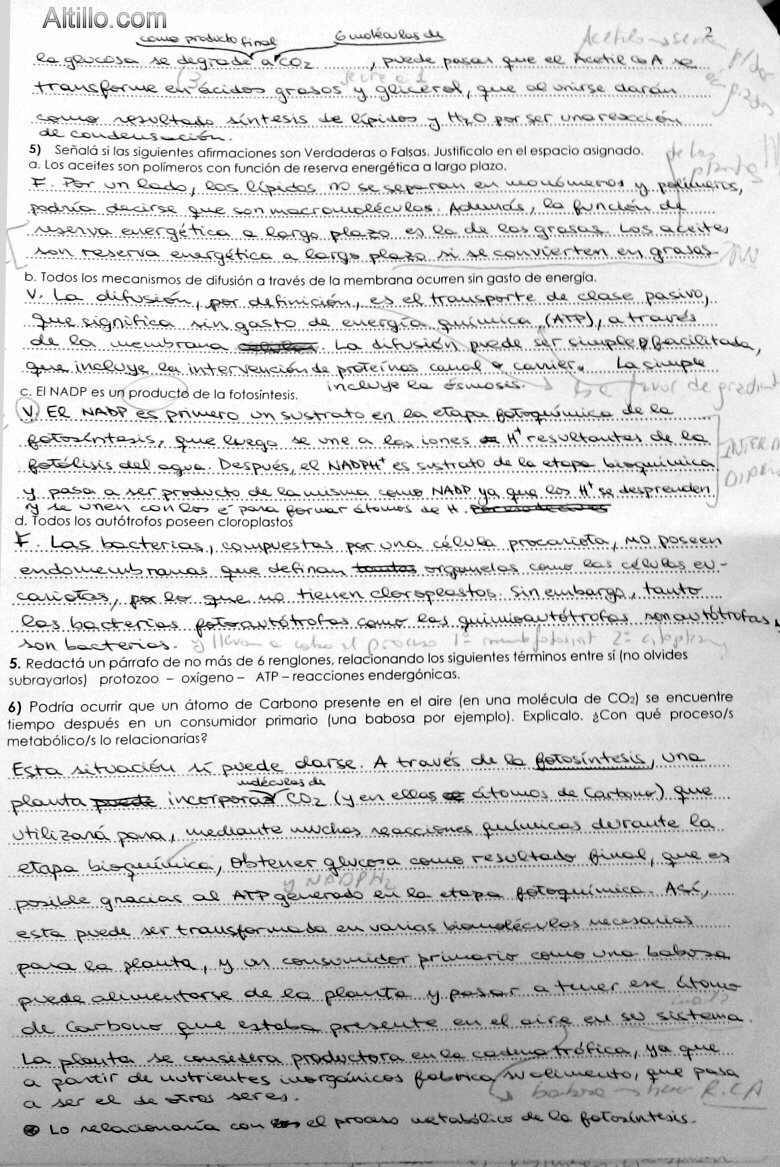 Altillo.com
2
como producto final
6 moléculas de
la glucosa se degrade a CO2, puede pasar que el Acetil coA se
transforme en ácidos grasos y glicerol, que al unirse darán
como resultado síntesis de lípidos y H2O por ser una reacción
de condensación.
5) Señalá si las siguientes afirmaciones son Verdaderas o Falsas. Justificalo en el espacio asignado.
a. Los aceites son polímeros con función de reserva energética a largo plazo.
F. Por un lado, los lípidos no se separan en monómeros y polímeros,
podría decirse que son macromoléculas. Además, la función de
reserva energética a largo plazo es la de las grasas. Los aceites
son reserva energética a largo plazo si se convierten en grasas.
de las plantas
b. Todos los mecanismos de difusión a través de la membrana ocurren sin gasto de energía.
V. La difusión, por definición, es el transporte de clase pasivo,
que significa sin gasto de energía química (ATP), a través
de la membrana celular. La difusión puede ser simple o facilitada,
que incluye la intervención de proteínas canal o carrier. La simple
incluye la ósmosis.
a favor de gradient
c. El NADP es un producto de la fotosíntesis.
V. El NADP es primero un sustrato en la etapa fotoquímica de la
fotosíntesis, que luego se une a los iones H+ resultantes de la
fotólisis del agua. Después, el NADPH+ es sustrato de la etapa bioquímica
y pasa a ser producto de la misma como NADP ya que los H+ se desprenden
y se unen con los é para formar átomos de H.
d. Todos los autótrofos poseen cloroplastos
F. Las bacterias, compuestas por una célula procariota, no poseen
endomembranas que definan organelas como las células eu-
cariotas, por lo que no tienen cloroplastos. Sin embargo, tanto
las bacterias fotoautótrofas como las quimioautótrofas son autótrofas y
son bacterias.
y llevan a cabo el proceso
5. Redactá un párrafo de no más de 6 renglones, relacionando los siguientes términos entre sí (no olvides
subrayarlos) protozoo – oxígeno – ATP – reacciones endergónicas.
6) Podría ocurrir que un átomo de Carbono presente en el aire (en una molécula de CO2) se encuentre
tiempo después en un consumidor primario (una babosa por ejemplo). Explicalo. ¿Con qué proceso/s
metabólico/s lo relacionarías?
Esta situación sí puede darse. A través de la fotosíntesis, una
moléculas de
planta puede incorporar CO2 (y en ellas átomos de Carbono) que
utilizará para, mediante muchas reacciones químicas durante la
etapa bioquímica, obtener glucosa como resultado final, que es
y NADPH2
posible gracias al ATP generado en la etapa fotoquímica. Así,
esta puede ser transformada en varias biomoléculas necesarias
para la planta, y un consumidor primario como una babosa
puede alimentarse de la planta y pasar a tener ese átomo
de Carbono que estaba presente en el aire en su sistema.
La planta se considera productora en la cadena trófica, ya que
a partir de nutrientes inorgánicos fabrica su alimento, que pasa
a ser el de otros seres.
babosa
R.C.A
Lo relacionaría con el proceso metabólico de la fotosíntesis.